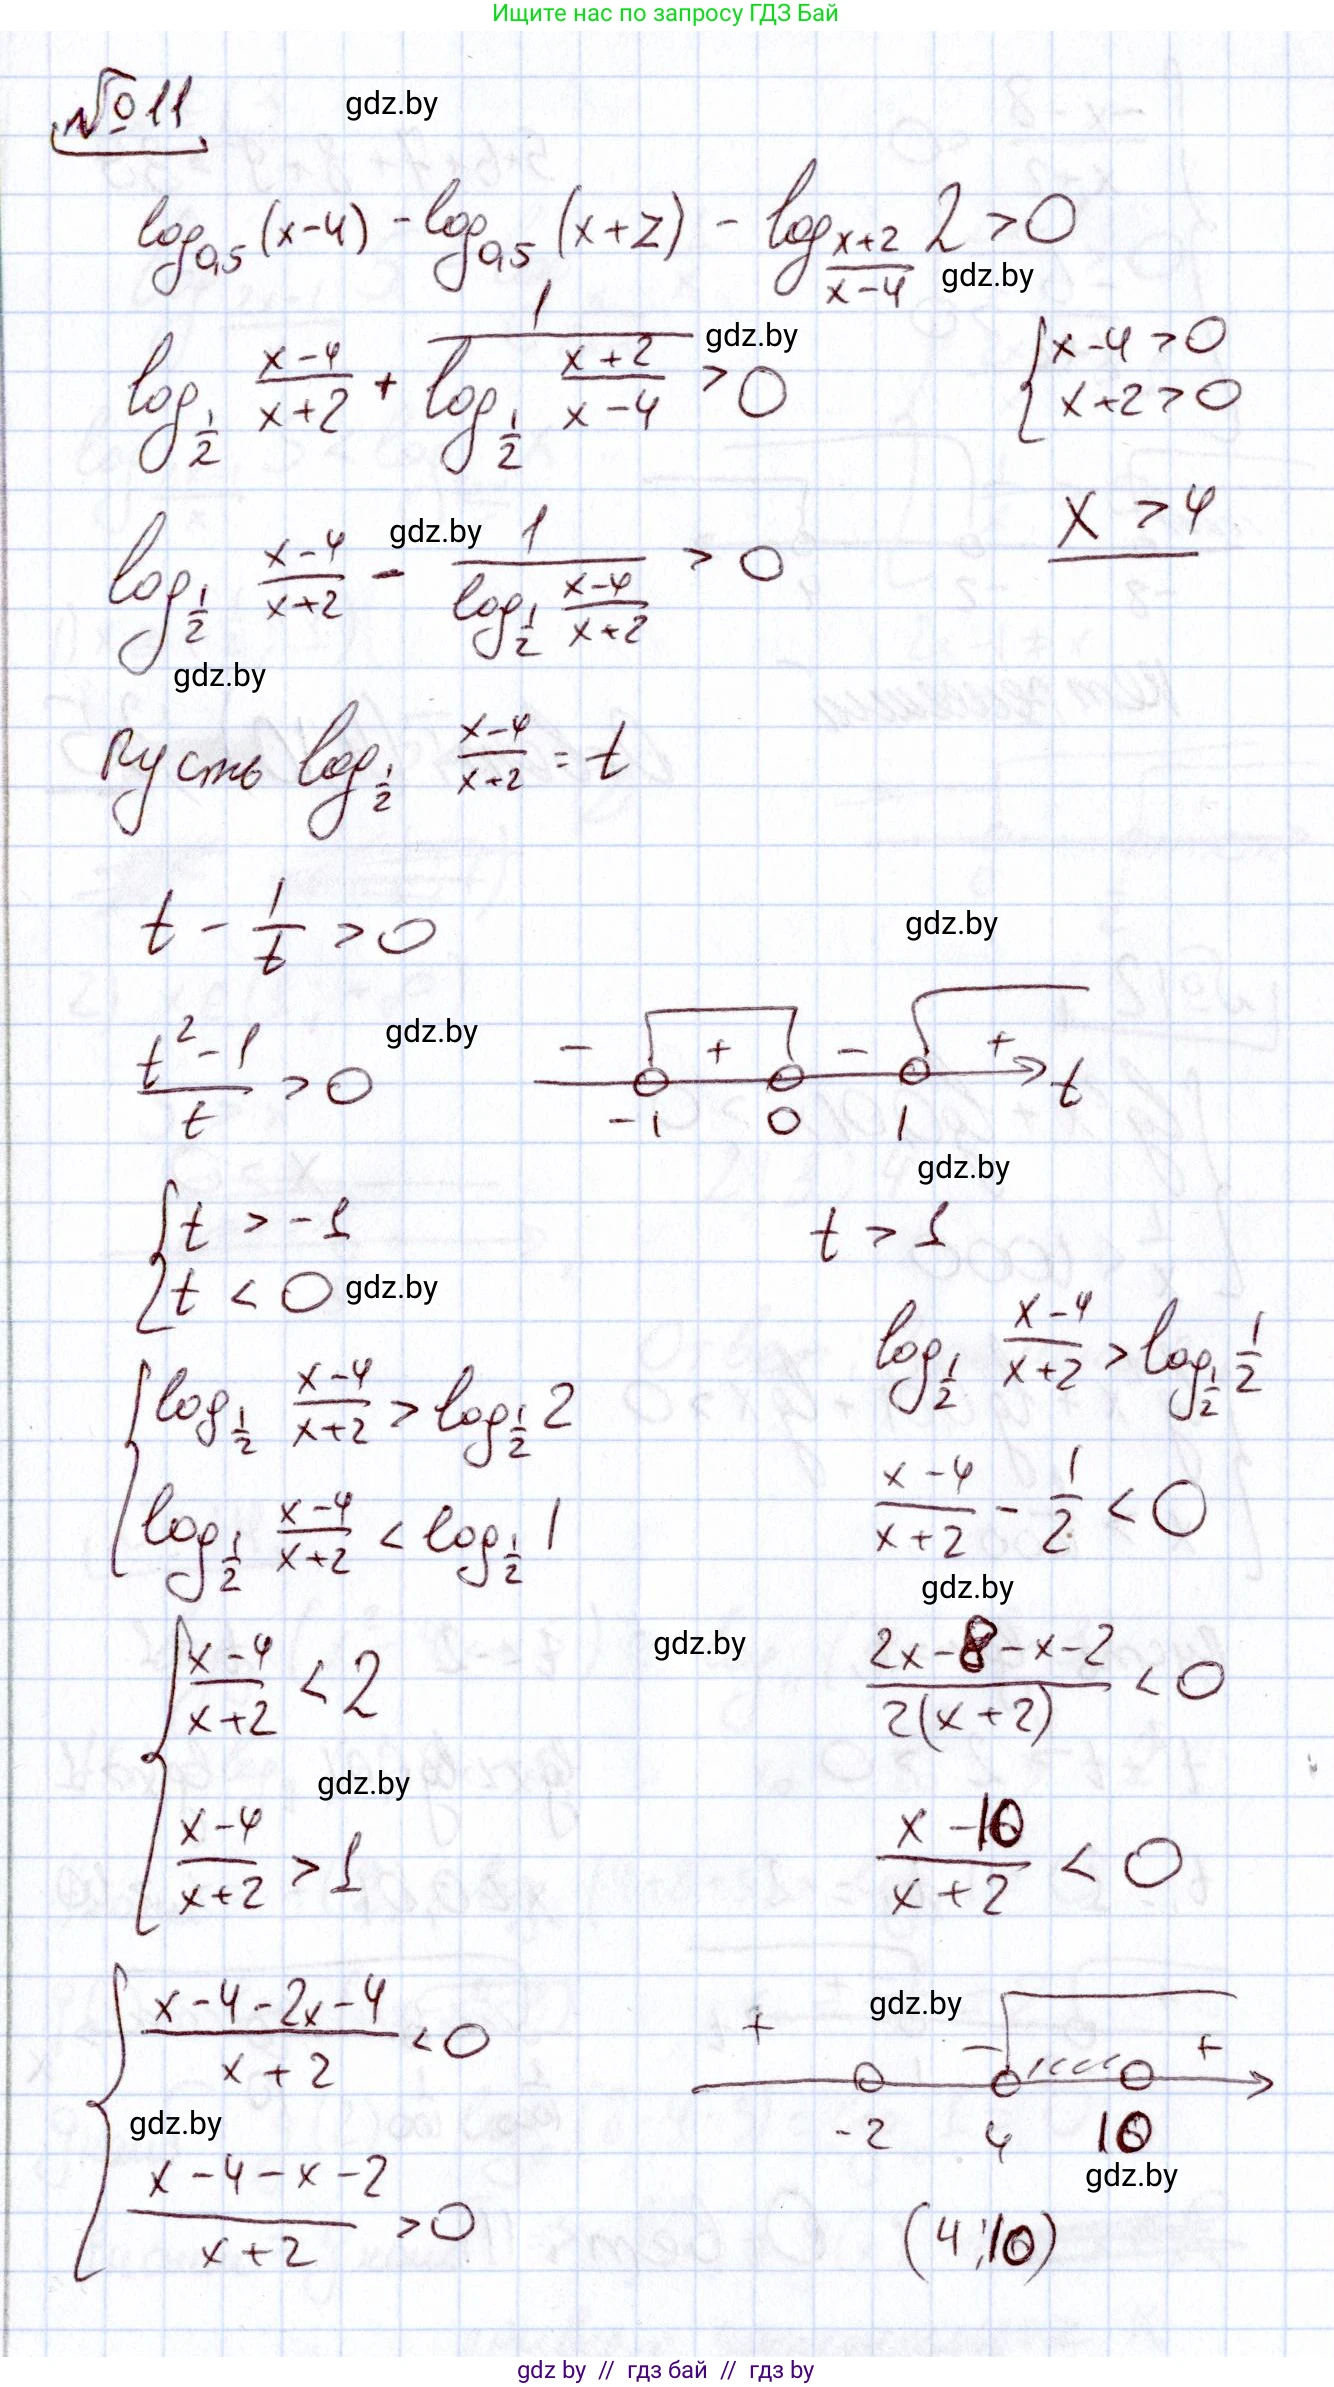 Ищите нас по запросу ГДЗ Бай
№ 11
gdz.by
log_{0,5}(x-4) - log_{0,5}(x+2) - log_{\frac{x+2}{x-4}} 2 > 0
gdz.by
log_{\frac{1}{2}} \frac{x-4}{x+2} + \frac{1}{log_{\frac{1}{2}} \frac{x+2}{x-4}} > 0
gdz.by
{ x-4 > 0
x+2 > 0
x > 4
log_{\frac{1}{2}} \frac{x-4}{x+2} - \frac{1}{log_{\frac{1}{2}} \frac{x-4}{x+2}} > 0
gdz.by
gdz.by
Пусть log_{\frac{1}{2}} \frac{x-4}{x+2} = t
t - \frac{1}{t} > 0
gdz.by
\frac{t^2-1}{t} > 0
gdz.by
- + - + t
-1 0 1
gdz.by
{ t > -1
t < 0
gdz.by
{ log_{\frac{1}{2}} \frac{x-4}{x+2} > log_{\frac{1}{2}} 2
log_{\frac{1}{2}} \frac{x-4}{x+2} < log_{\frac{1}{2}} 1
{ \frac{x-4}{x+2} < 2
gdz.by
\frac{x-4}{x+2} > 1
{ \frac{x-4-2x-4}{x+2} < 0
gdz.by
\frac{x-4-x-2}{x+2} > 0
t > 1
log_{\frac{1}{2}} \frac{x-4}{x+2} > log_{\frac{1}{2}} \frac{1}{2}
\frac{x-4}{x+2} - \frac{1}{2} < 0
gdz.by
gdz.by
\frac{2x-8-x-2}{2(x+2)} < 0
\frac{x-10}{x+2} < 0
gdz.by
+ - +
-2 4 10
gdz.by
(4; 10)
gdz by // гдз бай // гдз by